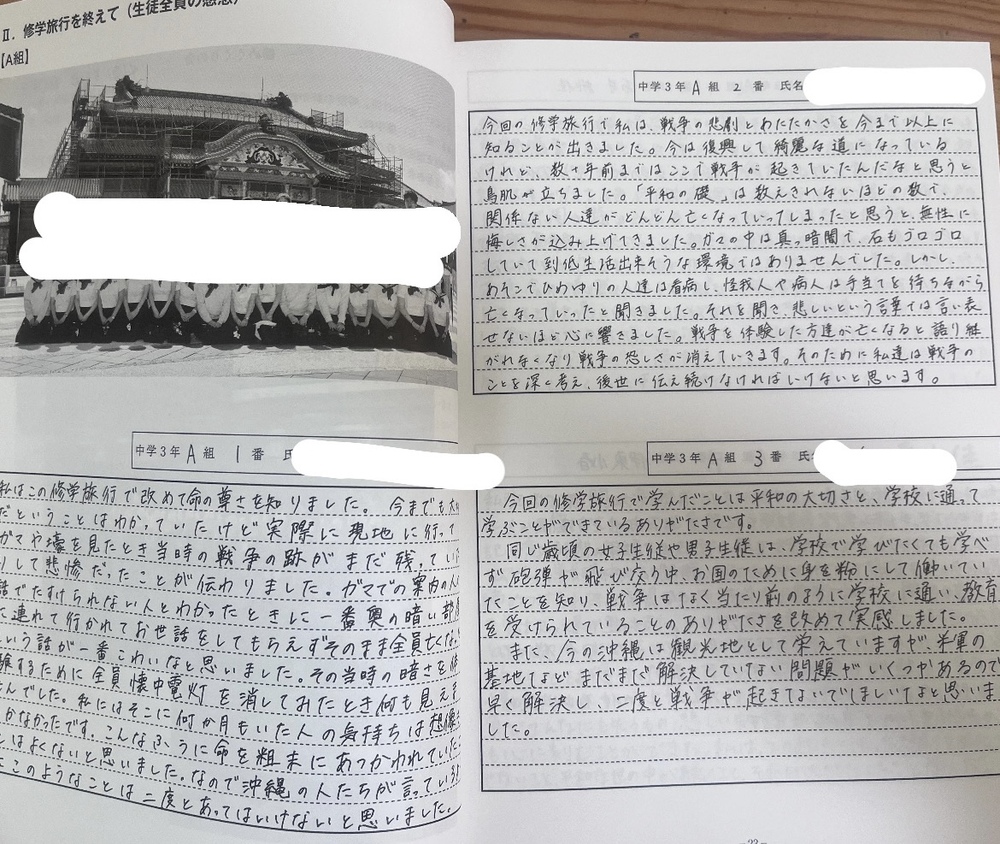 Ⅱ. 修学旅行を終えて（生徒全員の感想）
【A組】
中学3年 A 組 1 番
私はこの修学旅行で改めて命の尊さを知りました。今までも大
だということはわかっていたけど実際に現地に行って
ガマや壕を見たとき当時の戦争の跡がまだ残ってい
りして悲惨だったことが伝わりました。ガマでの案内の人の
話でたすけられない人とわかったときに一番奥の暗い部
に連れて行かれてお世話をしてもらえずそのまま全員亡くな
いう話が一番こわいなと思いました。その当時の暗さを体
験するために全員懐中電灯を消してみたとき何も見えま
んでした。私にはそこに何か月もいた人の気持ちは想像
かなかったです。こんなふうに命を粗末にあつかわれていた
とはよくないと思いました。なので沖縄の人たちが言っている
にこのようなことは二度とあってはいけないと思いました。
中学3年 A 組 2 番 氏名
今回の修学旅行で私は、戦争の悲劇とあたたかさを今まで以上に
知ることが出来ました。今は復興して綺麗な道になっている
けれど、数十年前まではここで戦争が起きていたんだなと思うと
鳥肌が立ちました。「平和の礎」は数えきれないほどの数で、
関係ない人達がどんどん亡くなっていってしまったと思うと、無性に
悔しさが込み上げてきました。ガマの中は真っ暗闇で、石もゴロゴロ
していて到低生活出来そうな環境ではありませんでした。しかし、
あそこでひめゆりの人達は看病し、怪我人や病人は手当てを待ちながら
亡くなっていったと聞きました。それを聞き、悲しいという言葉では言い表
せないほど心に響きました。戦争を体験した方達が亡くなると語り継
がれなくなり戦争の恐しさが消えていきます。そのために私達は戦争の
ことを深く考え、後世に伝え続けなければいけないと思います。
中学3年 A 組 3 番 氏
今回の修学旅行で学んだことは平和の大切さと、学校に通って
学ぶことができているありがたさです。
同じ歳頃の女子生徒や男子生徒は、学校で学びたくても学べ
ず砲弾が飛び交う中、お国のために身を粉にして働いてい
たことを知り、戦争はなく当たり前のように学校に通い、教育
を受けられていることのありがたさを改めて実感しました。
また、今の沖縄は観光地として栄えていますが、米軍の
基地などまだまだ解決していない問題がいくつかあるので
早く解決し、二度と戦争が起きないでほしいなと思いま
した。